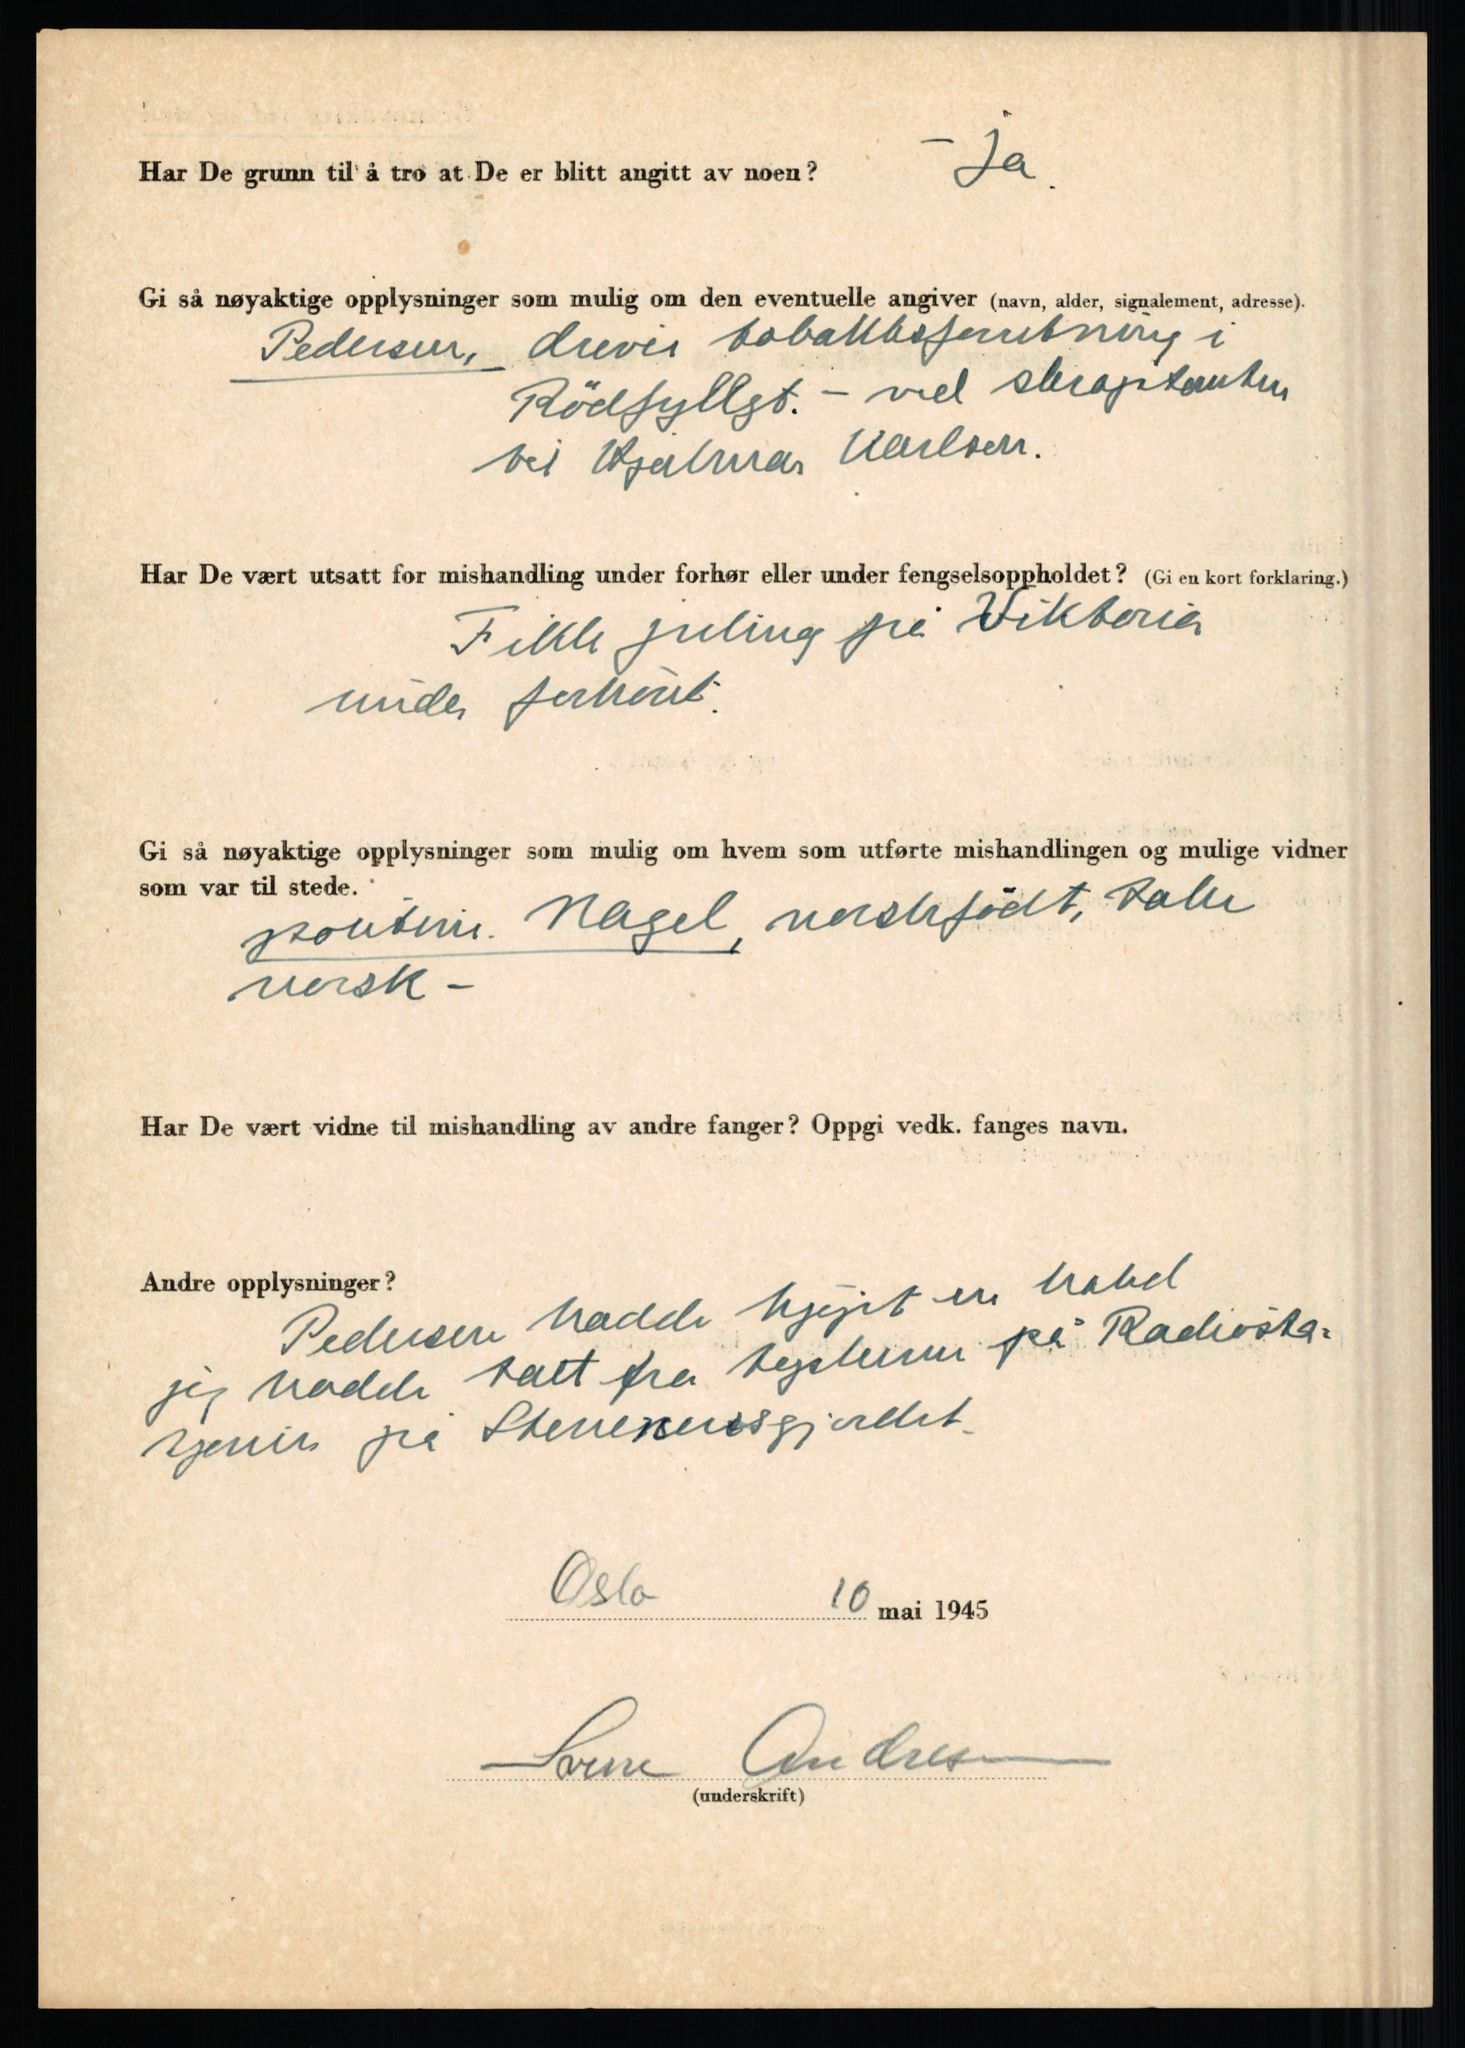 Har De grunn til å tro at De er blitt angitt av noen? – ja.
Gi så nøyaktige opplysninger som mulig om den eventuelle angiver (navn, alder, signalement, adresse).
Pedersen, – drever tobakksforretning i
Rödfyllgt. – ved
til Hjalmar Karlsen.
Har De vært utsatt for mishandling under forhør eller under fengselsoppholdet? (Gi en kort forklaring.)
Fikk juling på Viktoria
under forhöret.
Gi så nøyaktige opplysninger som mulig om hvem som utførte mishandlingen og mulige vidner
som var til stede.
Nagel, norskfödt, taler
norsk –
Har De vært vidne til mishandling av andre fanger? Oppgi vedk. fanges navn.
Andre opplysninger?
Pedersen hadde kjöpt en kabel
jeg hadde tatt fra tyskerne på Radiosta-
sjonen på Sterrenersgjordet.
Oslo 10 mai 1945
Sverre Andresen
(underskrift)